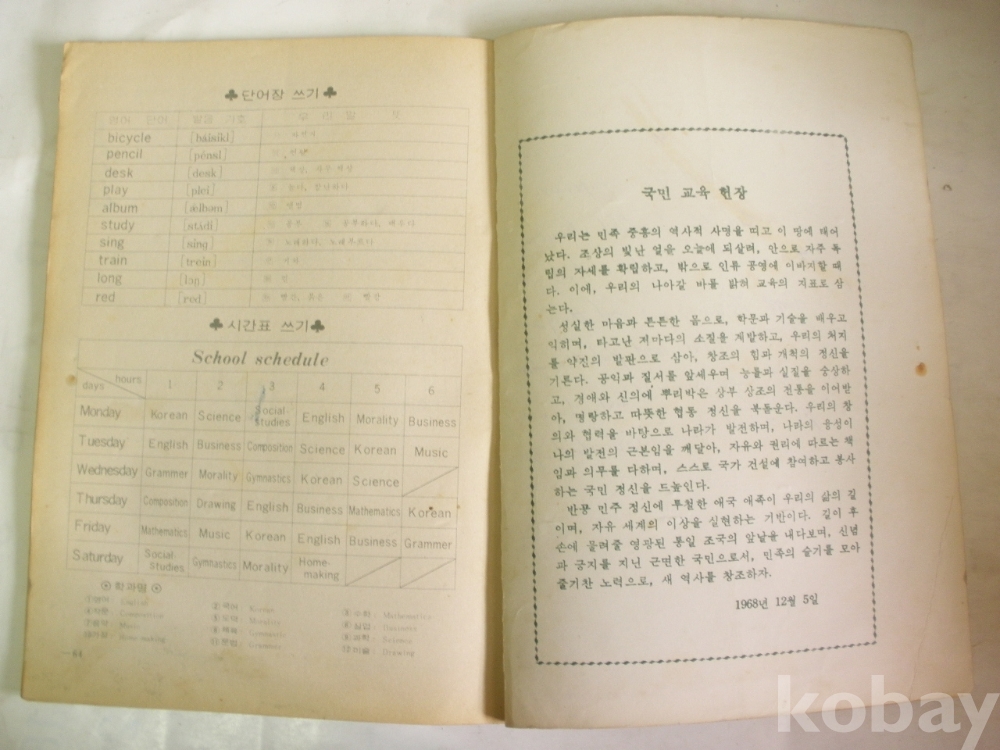 ♣단어장 쓰기♣
영어 단어 발음 기호 우 리 말 뜻
bicycle [báisikl] 자전거
pencil [pénsl] 연필
desk [desk] 책상,
play [plei] 놀다,
album [ǽlbəm] 앨범
study [stʌ́di] 공부 공부하다, 배우다
sing [siŋ] 노래하다, 노래부르다
train [trein] 기차
long [lɔŋ] 긴
red [red] 빨간, 붉은 빨강
♣시간표 쓰기♣
School schedule
days hours 1 2 3 4 5 6
Monday Korean Science Social-studies English Morality Business
Tuesday English Business Composition Science Korean Music
Wednesday Grammer Morality Gymnastics Korean Science
Thursday Composition Drawing English Business Mathematics Korean
Friday Mathematics Music Korean English Business Grammer
Saturday Social-studies Gymnastics Morality Home-making
◉학과명◉
①영어: English ②국어: Korean ③수학: Mathematics
④작문: Composition ⑤도덕: Morality ⑥실업: Business
⑦음악: Music ⑧체육: Gymnastic ⑨과학: Science
⑩가정: Home-making ⑪문법: Grammer ⑫미술: Drawing
—64
국민 교육 헌장
우리는 민족 중흥의 역사적 사명을 띠고 이 땅에 태어
났다. 조상의 빛난 얼을 오늘에 되살려, 안으로 자주 독
립의 자세를 확립하고, 밖으로 인류 공영에 이바지할 때
다. 이에, 우리의 나아갈 바를 밝혀 교육의 지표로 삼
는다.
성실한 마음과 튼튼한 몸으로, 학문과 기술을 배우고
익히며, 타고난 저마다의 소질을 개발하고, 우리의 처지
를 약진의 발판으로 삼아, 창조의 힘과 개척의 정신을
기른다. 공익과 질서를 앞세우며 능률과 실질을 숭상하
고, 경애와 신의에 뿌리박은 상부 상조의 전통을 이어받
아, 명랑하고 따뜻한 협동 정신을 북돋운다. 우리의 창
의와 협력을 바탕으로 나라가 발전하며, 나라의 융성이
나의 발전의 근본임을 깨달아, 자유와 권리에 따르는 책
임과 의무를 다하며, 스스로 국가 건설에 참여하고 봉사
하는 국민 정신을 드높인다.
반공 민주 정신에 투철한 애국 애족이 우리의 삶의 길
이며, 자유 세계의 이상을 실현하는 기반이다. 길이 후
손에 물려줄 영광된 통일 조국의 앞날을 내다보며, 신념
과 긍지를 지닌 근면한 국민으로서, 민족의 슬기를 모아
줄기찬 노력으로, 새 역사를 창조하자.
1968년 12월 5일
kobay